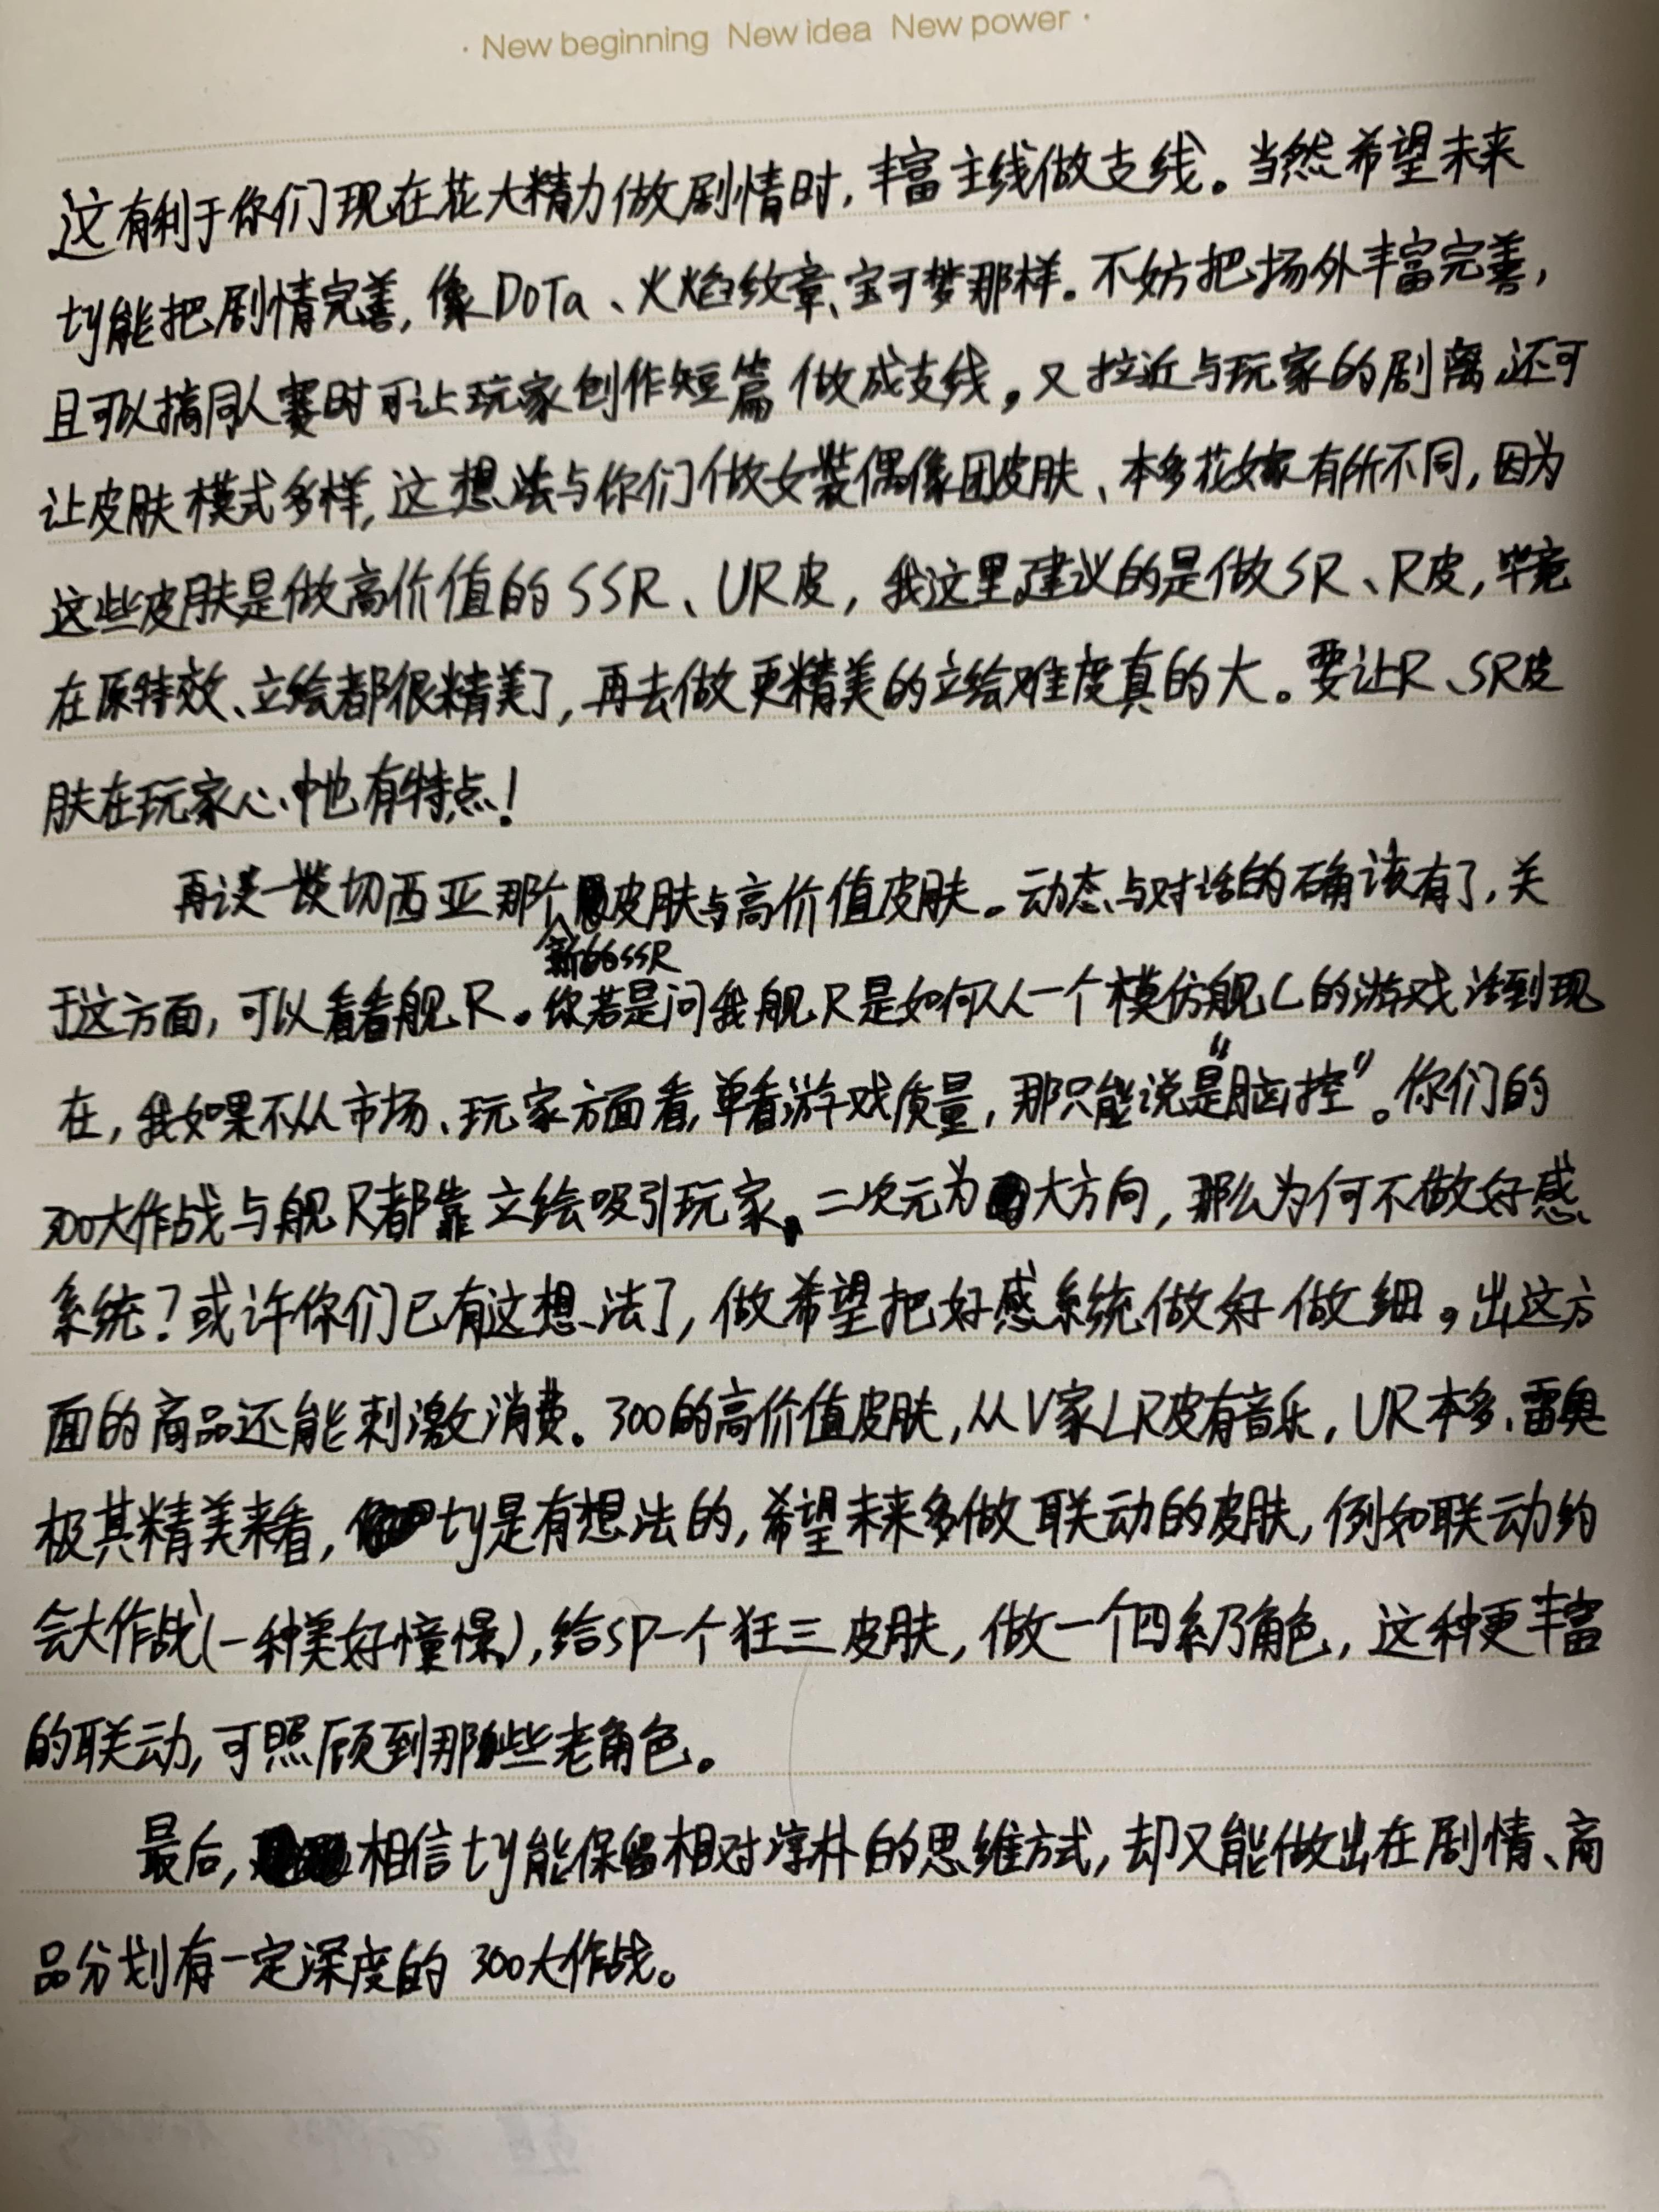 · New beginning New idea New power ·
这有利于你们现在花大精力做剧情时，丰富主线做支线。当然希望未来
ty能把剧情完善，像DoTa、火焰纹章、宝可梦那样。不妨把场外丰富完善，
且可以搞同人赛时可让玩家创作短篇做成支线，又拉近与玩家的剧离，还可
让皮肤模式多样，这想法与你们做女装偶像团皮肤、本多花嫁有所不同，因为
这些皮肤是做高价值的SSR、UR皮，我这里建议的是做SR、R皮，毕竟
在原特效、立绘都很精美了，再去做更精美的立绘难度真的大。要让R、SR皮
肤在玩家心中也有特点！
再谈一谈切西亚那个皮肤与高价值皮肤。动态与对话的确该有了，关
新的SSR
于这方面，可以看看舰R。你若是问我舰R是如何从一个模仿舰C的游戏活到现
在，我如果不从市场、玩家方面看，单看游戏质量，那只能说是“脑控”。你们的
300大作战与舰R都靠立绘吸引玩家，二次元为大方向，那么为何不做好感
系统？或许你们已有这想法了，做希望把好感系统做好做细，出这方
面的商品还能刺激消费。300的高价值皮肤，从V家LR皮有音乐，UR本多、雷奥
极其精美来看，ty是有想法的，希望未来多做联动的皮肤，例如联动约
会大作战（一种美好憧憬），给SP一个狂三皮肤，做一个四系乃角色，这种更丰富
的联动，可照顾到那些老角色。
最后，相信ty能保留相对淳朴的思维方式，却又能做出在剧情、商
品分划有一定深度的300大作战。